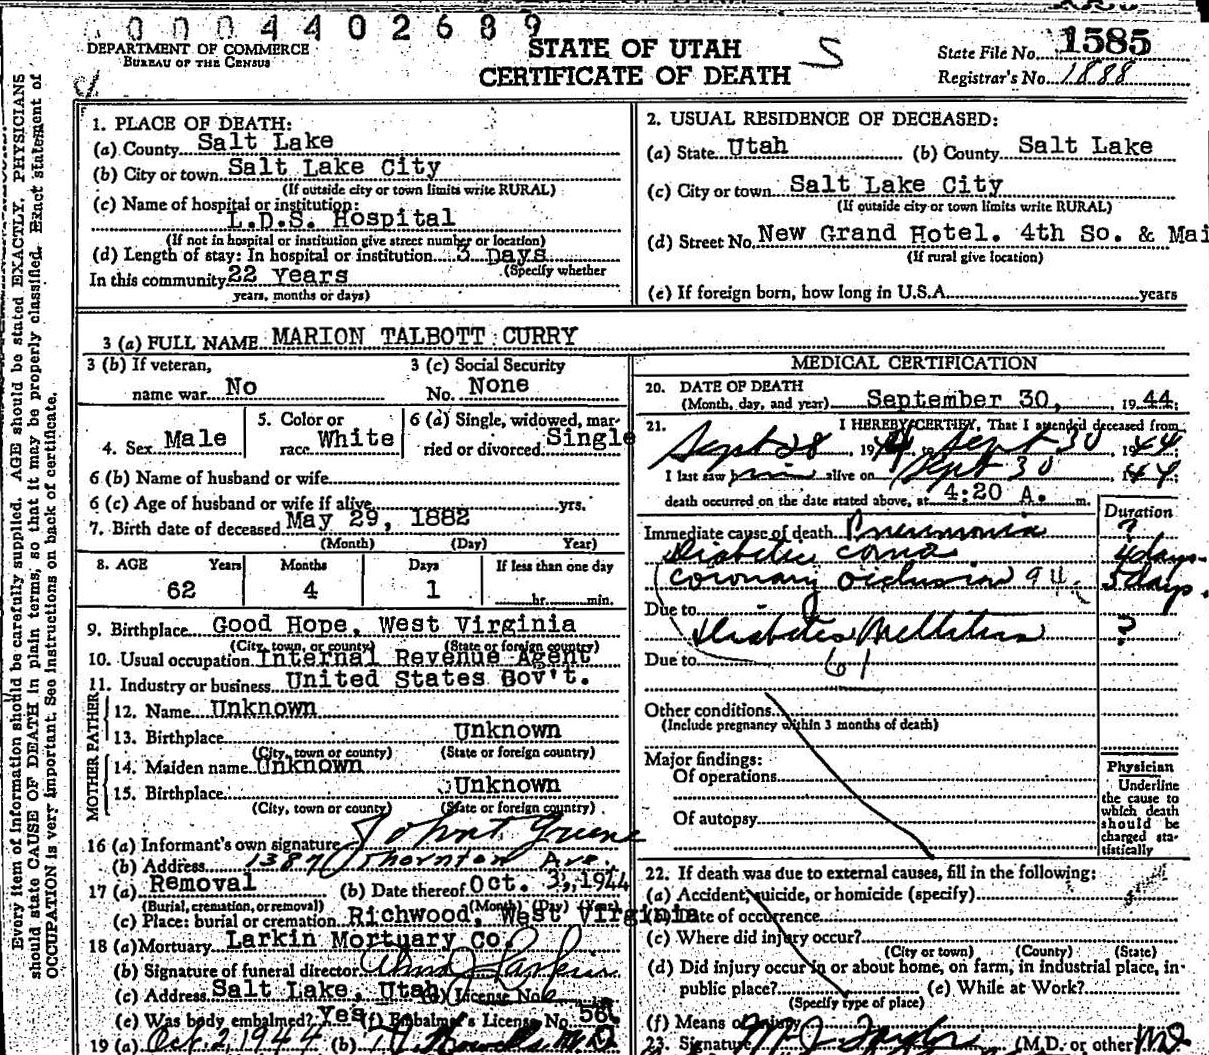 0 0 0 4 4 0 2 6 8 9
DEPARTMENT OF COMMERCE
BUREAU OF THE CENSUS
STATE OF UTAH
CERTIFICATE OF DEATH
S
State File No. 1585
Registrar's No. 1888
Every item of information should be carefully supplied. AGE should be stated EXACTLY. PHYSICIANS
should state CAUSE OF DEATH in plain terms, so that it may be properly classified. Exact statement of
OCCUPATION is very important. See instructions on back of certificate.
1. PLACE OF DEATH:
(a) County Salt Lake
(b) City or town Salt Lake City
(If outside city or town limits write RURAL)
(c) Name of hospital or institution:
L.D.S. Hospital
(If not in hospital or institution give street number or location)
(d) Length of stay: In hospital or institution 3 Days
(Specify whether
In this community 22 Years
years, months or days)
2. USUAL RESIDENCE OF DECEASED:
(a) State Utah (b) County Salt Lake
(c) City or town Salt Lake City
(If outside city or town limits write RURAL)
(d) Street No. New Grand Hotel. 4th So. & Mai
(If rural give location)
(e) If foreign born, how long in U.S.A. years
3 (a) FULL NAME MARION TALBOTT CURRY
3 (b) If veteran,
name war No
3 (c) Social Security
No. None
4. Sex Male
5. Color or
race White
6 (a) Single, widowed, mar-
ried or divorced Single
6 (b) Name of husband or wife
6 (c) Age of husband or wife if alive yrs.
7. Birth date of deceased May 29, 1882
(Month) (Day) Year)
8. AGE Years Months Days If less than one day
62 4 1 hr. min.
9. Birthplace Good Hope, West Virginia
(City, town, or county) (State or foreign country)
10. Usual occupation Internal Revenue Agent
11. Industry or business United States Gov't.
FATHER
12. Name Unknown
13. Birthplace Unknown
(City, town or county) (State or foreign country)
MOTHER
14. Maiden name Unknown
15. Birthplace Unknown
(City, town or county) (State or foreign country)
16 (a) Informant's own signature John T Greene
(b) Address 1387 Thornton Ave.
17 (a) Removal (b) Date thereof Oct. 3, 1944
(Burial, cremation, or removal) (Month) (Day) (Year)
(c) Place: burial or cremation Richwood, West Virginia
18 (a) Mortuary Larkin Mortuary Co.
(b) Signature of funeral director
(c) Address Salt Lake, Utah License No.
(e) Was body embalmed? Yes (f) Embalmer's License No. 56
19 (a) Oct. 2, 1944 (b) M.D.
MEDICAL CERTIFICATION
20. DATE OF DEATH
(Month, day, and year) September 30, 1944;
21. I HEREBY CERTIFY, That I attended deceased from
Sept 28, 1944 to Sept 30, 1944
I last saw him alive on Sept 30 1944
death occurred on the date stated above, at 4:20 A. m.
Duration
Immediate cause of death Pneumonia ?
Diabetic coma 4 days
Coronary occlusion 94 5 days
Due to
Diabetes Mellitus ?
Due to 61
Other conditions
(Include pregnancy within 3 months of death)
Major findings:
Of operations
Of autopsy
Physician
Underline
the cause to
which death
should be
charged sta-
tistically
22. If death was due to external causes, fill in the following:
(a) Accident, suicide, or homicide (specify)
(b) Date of occurrence
(c) Where did injury occur?
(City or town) (County) (State)
(d) Did injury occur in or about home, on farm, in industrial place, in
public place? (e) While at Work?
(Specify type of place)
(f) Means of injury
23. Signature Taylor (M.D. or other MD